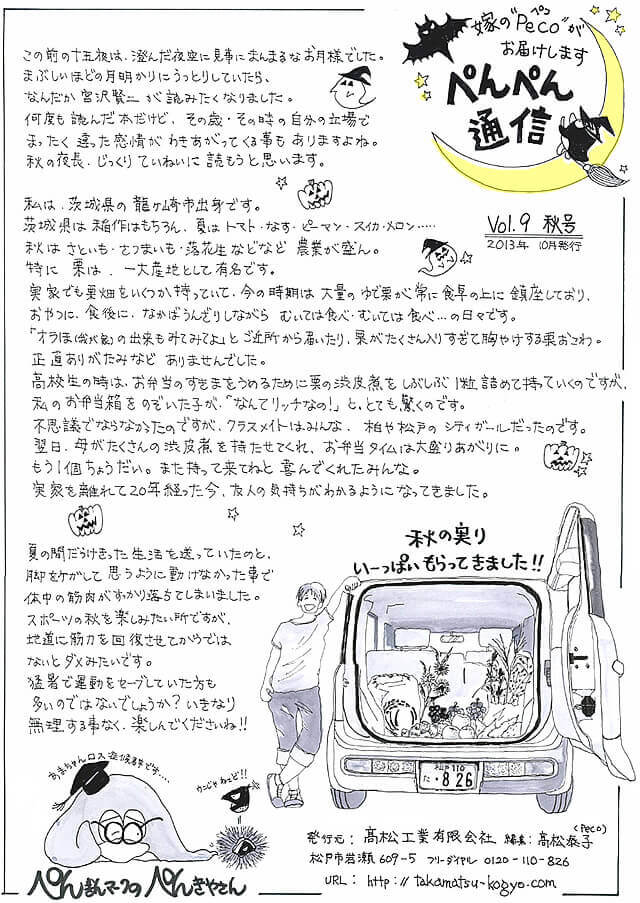 嫁の"Peco"が
ペコ
お届けします
ぺんぺん
通信
Vol.9 秋号
2013年 10月発行
この前の十五夜は、澄んだ夜空に見事にまんまるなお月様でした。
まぶしいほどの月明かりにうっとりしていたら、
なんだか宮沢賢二が読みたくなりました。
何度も読んだ本だけど、その歳・その時の自分の立場で
まったく違った感情がわきあがってくる事もありますよね。
秋の夜長、じっくりていねいに読もうと思います。
私は、茨城県の龍ヶ崎市出身です。
茨城県は稲作はもちろん、夏はトマト・なす・ピーマン・スイカ・メロン……
秋はさといも・さつまいも・落花生などなど農業が盛ん。
特に栗は、一大産地として有名です。
実家でも栗畑をいくつか持っていて、今の時期は大量のゆで栗が常に食卓の上に鎮座しており、
おやつに、食後に、なかばうんざりしながらむいては食べ・むいては食べ…の日々です。
「オラほ(我が家)の出来もみてみてよ」とご近所から届いたり、栗がたくさん入りすぎて胸やけする栗おこわ。
正直ありがたみなどありませんでした。
高校生の時は、お弁当のすきまをうめるために栗の渋皮煮をしぶしぶ1粒詰めて持っていくのですが、
私のお弁当箱をのぞいた子が、「なんてリッチなの!」と、とても驚くのです。
不思議でならなかったのですが、クラスメイトはみんな、柏や松戸のシティガールだったのです。
翌日、母がたくさんの渋皮煮を持たせてくれ、お弁当タイムは大盛りあがりに。
もう1個ちょうだい。また持って来てねと喜んでくれたみんな。
実家を離れて20年経った今、友人の気持ちがわかるようになってきました。
秋の実り
いーっぱいもらってきました!!
夏の間だらけきった生活を送っていたのと、
脚をケガして思うように動けなかった事で
体中の筋肉がすっかり落ちてしまいました。
スポーツの秋を楽しみたい所ですが、
地道に筋力を回復させてからでは
ないとダメみたいです。
猛暑で運動をセーブしていた方も
多いのではないでしょうか?いきなり
無理する事なく、楽しんでくださいね!!
松戸 110
た ・8 26
あまちゃんロス症候群です….
ウニじゃねぇど!!
ぺんぎんマークのぺんきやさん
発行元: 髙松工業有限会社 編集: 髙松泰子
(Peco)
松戸市岩瀬 609-5 フリーダイヤル 0120-110-826
URL: http://takamatsu-kogyo.com